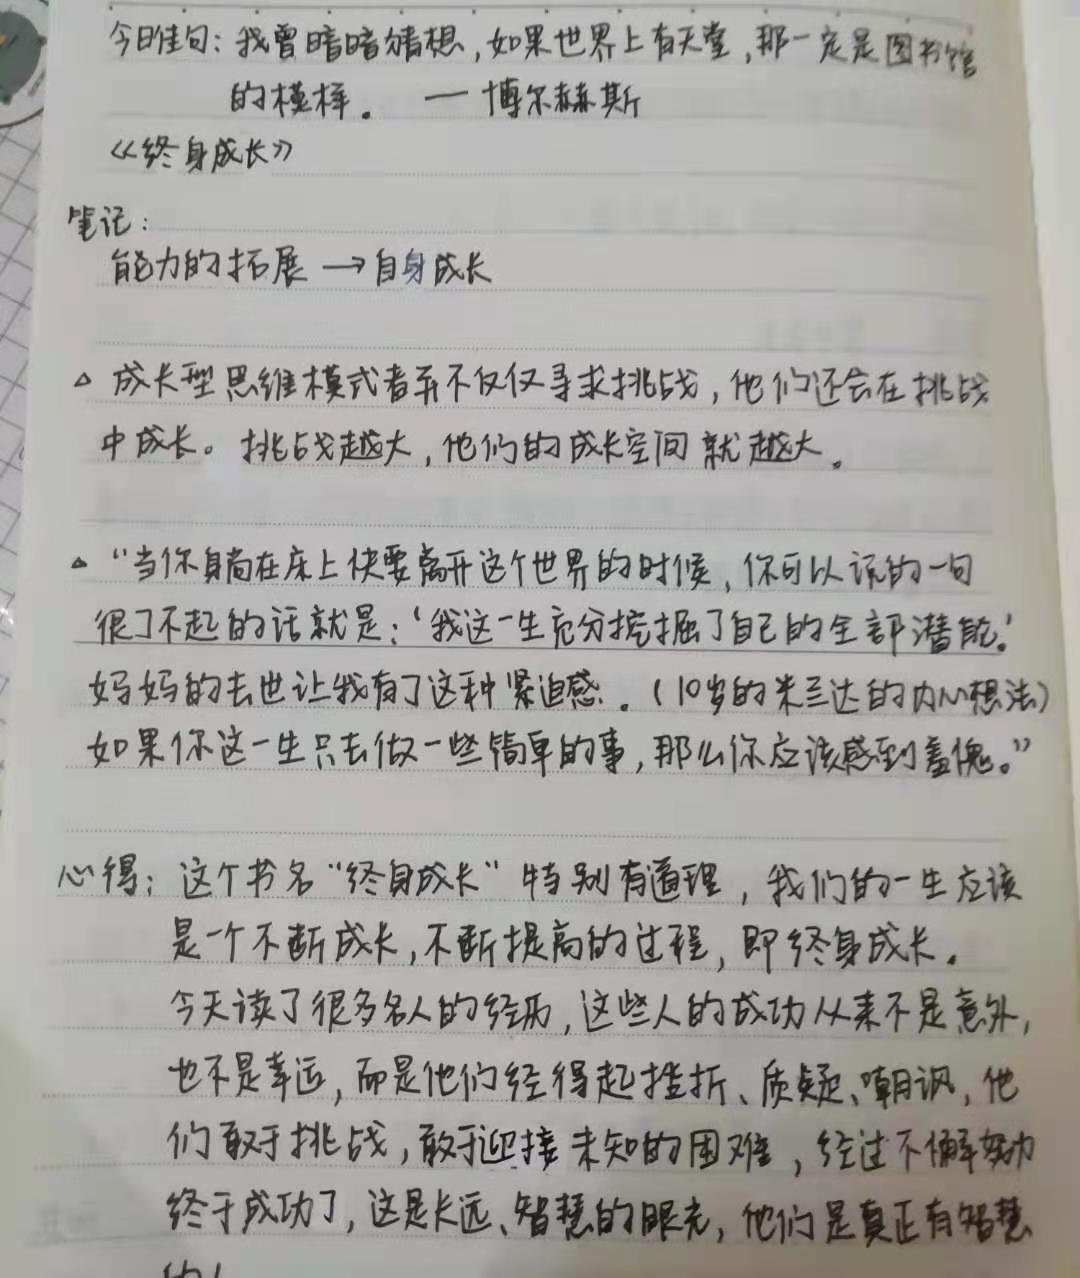 今日佳句：我曾暗暗猜想，如果世界上有天堂，那一定是图书馆
的模样。 — 博尔赫斯
《终身成长》
笔记：
能力的拓展 → 自身成长
△ 成长型思维模式者并不仅仅寻求挑战，他们还会在挑战
中成长。挑战越大，他们的成长空间就越大。
△ “当你躺在床上快要离开这个世界的时候，你可以说的一句
很了不起的话就是：‘我这一生充分挖掘了自己的全部潜能。’
妈妈的去世让我有了这种紧迫感。（10岁的米兰达的内心想法）
如果你这一生只去做一些简单的事，那么你应该感到羞愧。”
心得：这个书名“终身成长”特别有道理，我们的一生应该
是一个不断成长，不断提高的过程，即终身成长。
今天读了很多名人的经历，这些人的成功从来不是意外，
也不是幸运，而是他们经得起挫折、质疑、嘲讽，他
们敢于挑战，敢于迎接未知的困难，经过不懈努力
终于成功了，这是长远、智慧的眼光，他们是真正有智慧